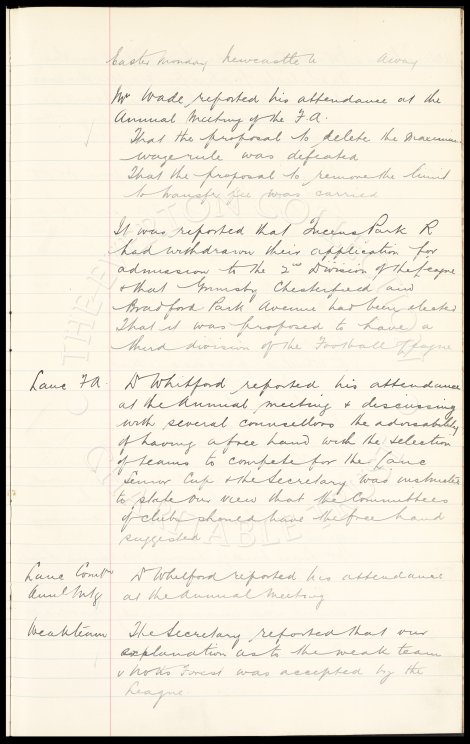 Easter Monday Newcastle U away
Mr Wade reported his attendance at the
Annual Meeting of the F.A.
That the proposal to delete the maximum
wage rule was defeated
That the proposal to remove the limit
to transfer fee was carried
It was reported that Queens Park R
had withdrawn their application for
admission to the 2nd Division of the League
& that Grimsby Chesterfield and
Bradford Park Avenue had been elected
That it was proposed to have a
third division of the Football League
Lanc F.A. Dr Whitford reported his attendance
at the Annual Meeting & discussing
with several councillors the advisability
of having a free hand with the selection
of teams to compete for the Lanc
Senior Cup & the Secretary was instructed
to state our view that the Committees
of clubs should have the free hand
suggested
Lanc Combn Dr Whitford reported his attendance
Annl Mtg at the Annual Meeting
Weak team The Secretary reported that our
explanation as to the weak team
v Notts Forest was accepted by the
League.